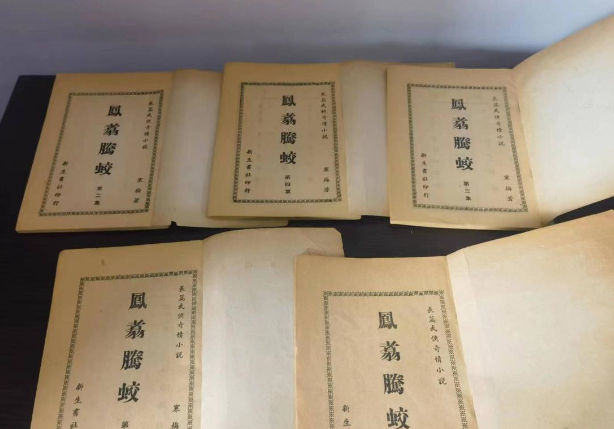 長篇武俠奇情小說
寒梅著
鳳翥騰蛟
第二集
新生書社印行
長篇武俠奇情小說
寒梅著
鳳翥騰蛟
第四集
新生書社印行
長篇武俠奇情小說
寒梅著
鳳翥騰蛟
第二集
新生書社印行
長篇武俠奇情小說
寒梅
鳳翥騰蛟
第
新生書社
長篇武俠奇情小說
鳳翥騰蛟
新生